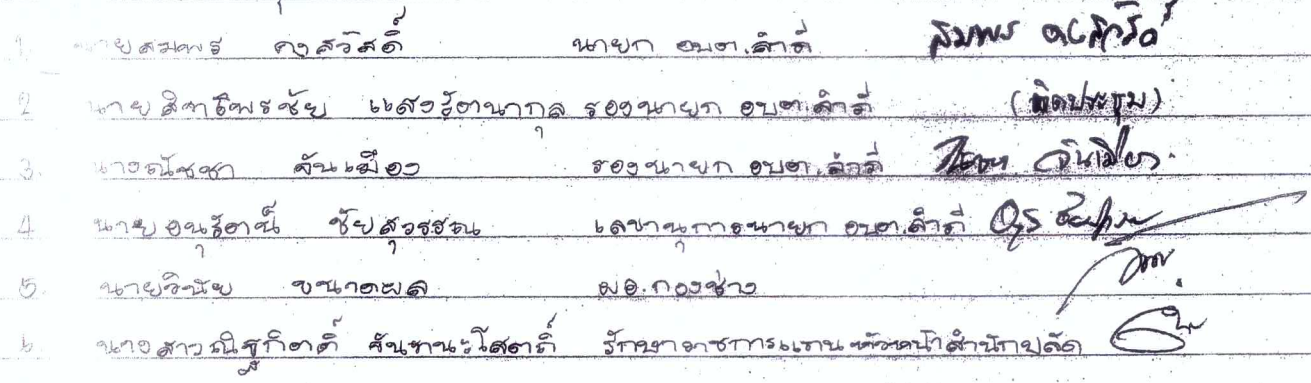 1. นายสมพร คงสวัสดิ์ นายก อบต.ลำภี สมพร คงสวัสดิ์
2 นายสิทธิพรชัย แสงรัตนากุล รองนายก อบต.ลำภี (ติดประชุม)
3. นางณัชชา จันเมือง รองนายก อบต.ลำภี ณัชชา จันเมือง
4 นายอนุรัตน์ ชัยสุวรรณ เลขานุการนายก อบต.ลำภี
5. นายวินัย ขนาดผล ผอ.กองช่าง
6. นางสาวณิฐกิตติ์ จันทนะโสตถิ์ รักษาราชการแทนหัวหน้าสำนักปลัด